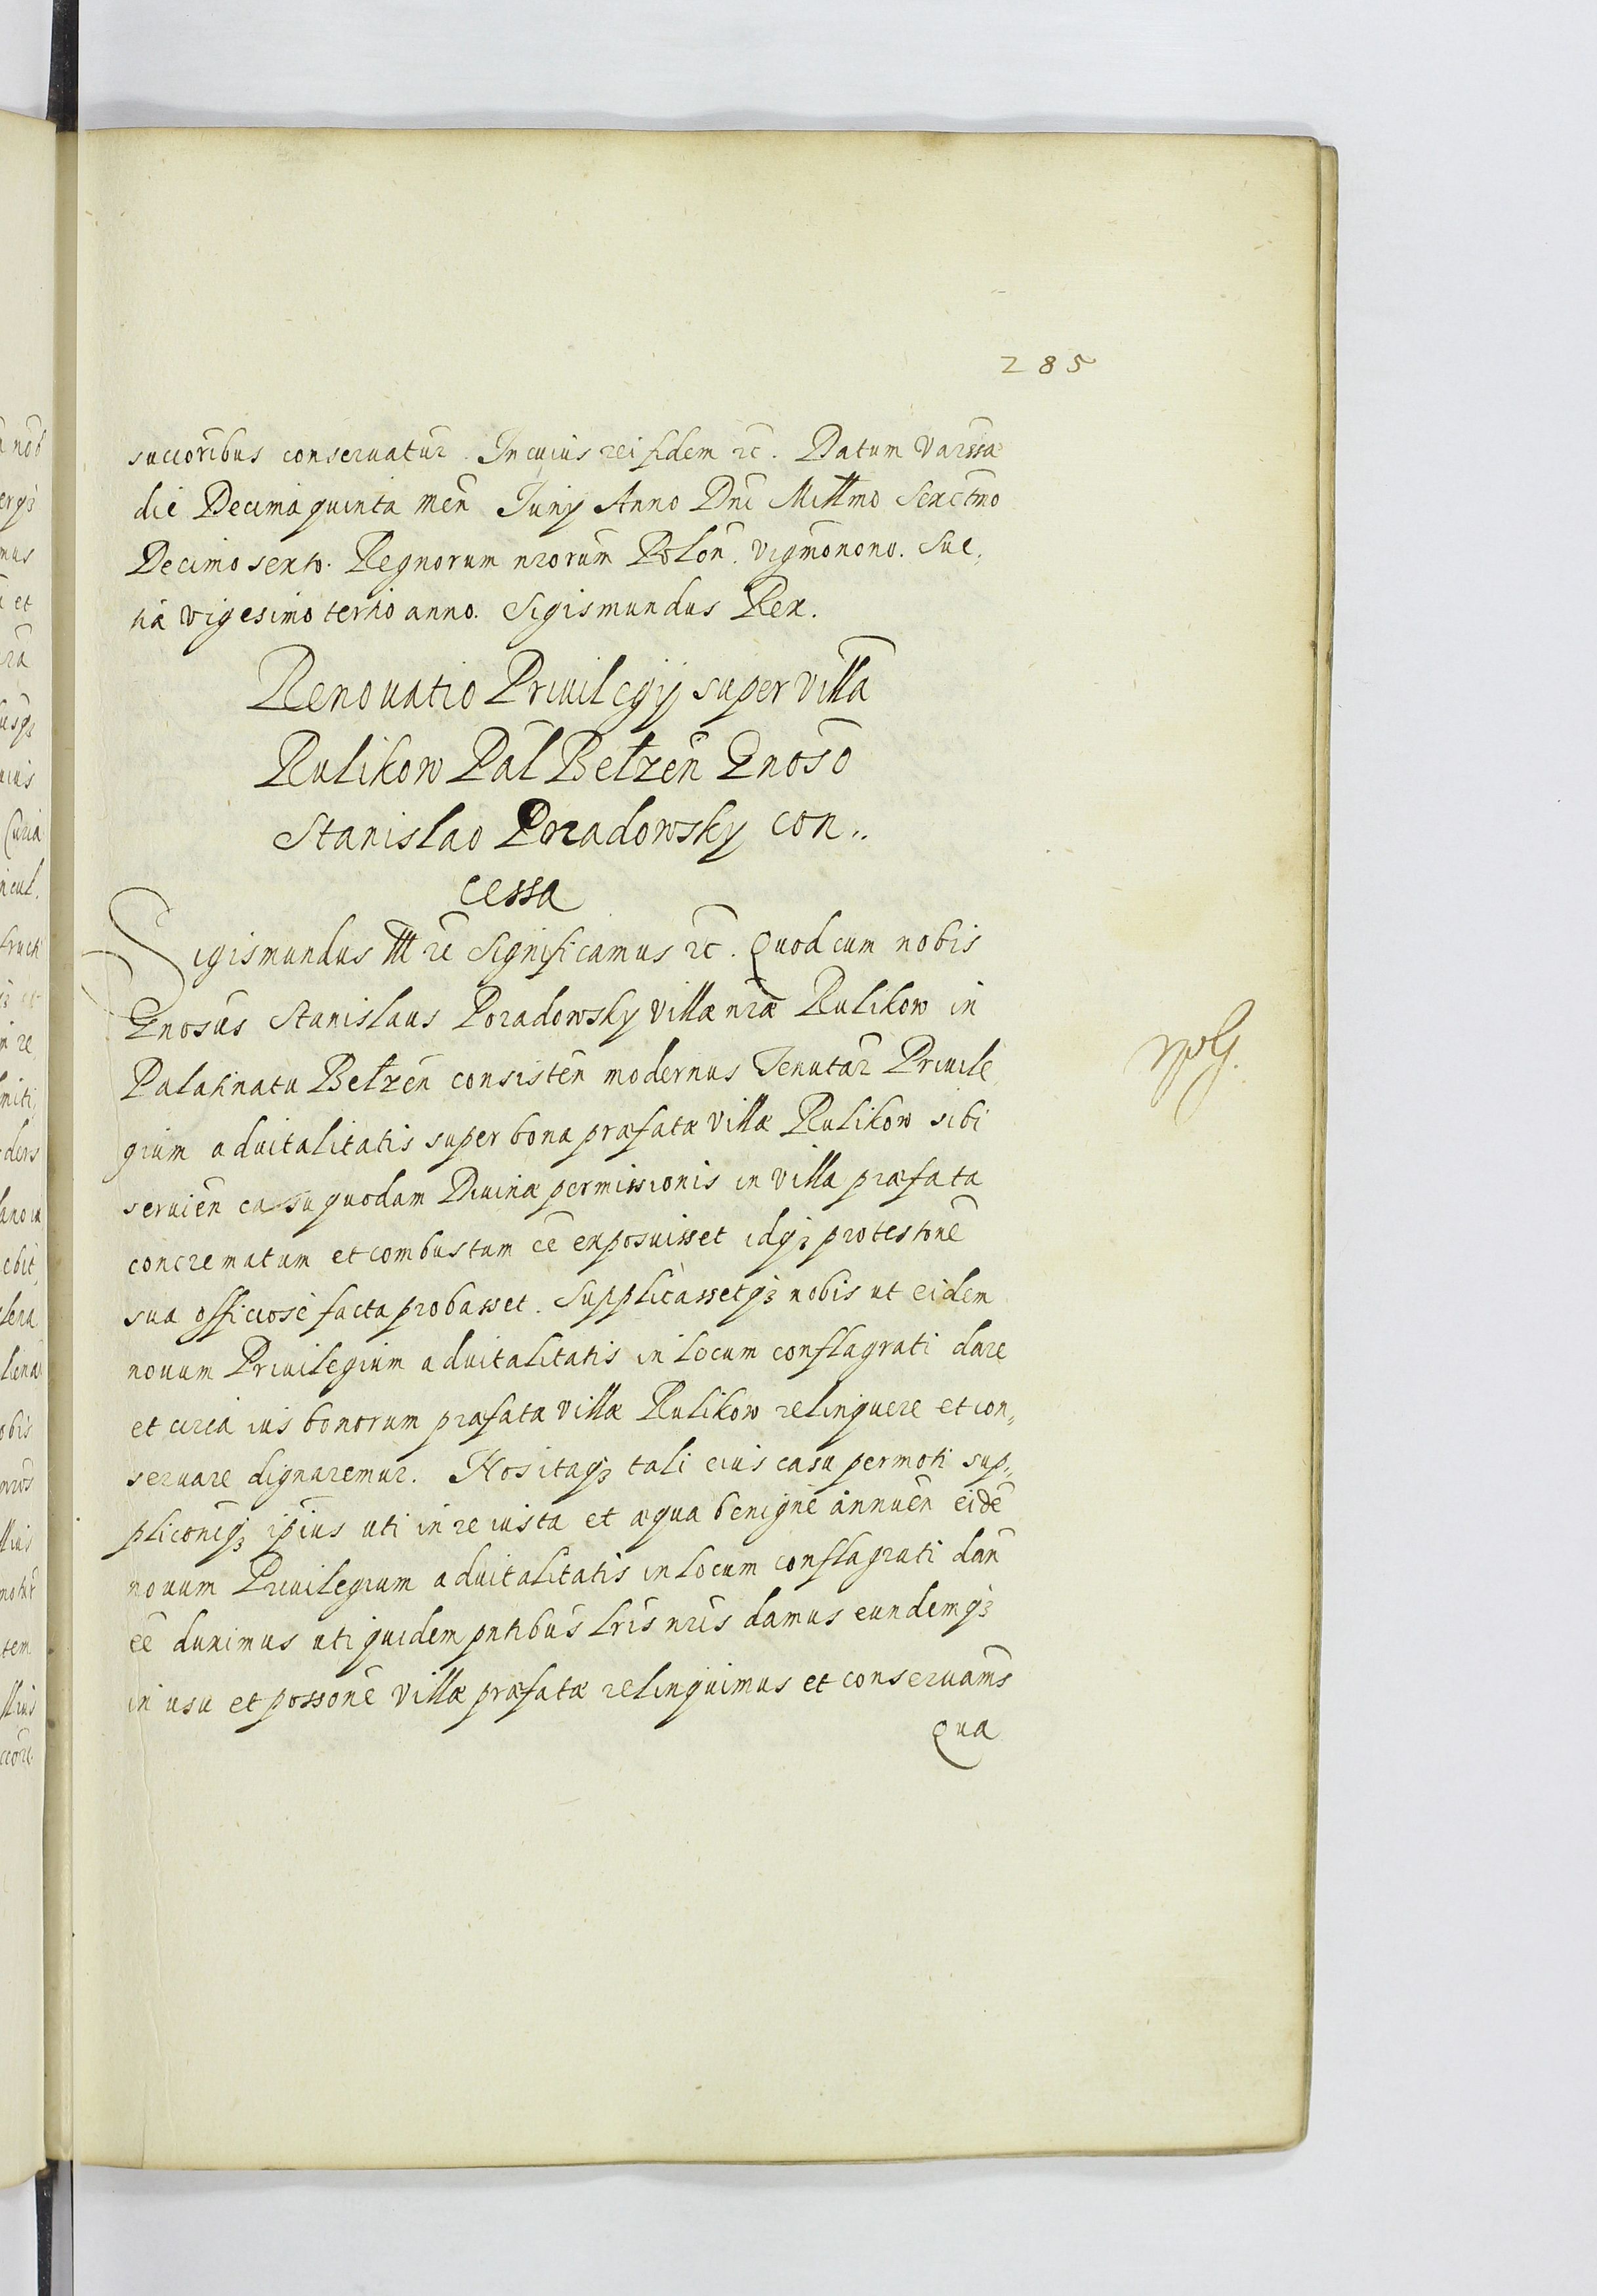 285
succoribus conseruatur. In cuius rei fidem rc. Datum Varssæ
die Decima quinta men̄ Junij Anno Dn̄i Millmo Sexctmo
Decimo sexto. Regnorum nrorum Polon̄. vigmonono. Sue,
tiæ vigesimo tertio anno. Sigismundus Rex.
Renouatio Priuilegij super villa
Rulikow Pal Betzen̄ Gnoso
Stanislao Poradowsky con..
cessa
Sigismundus III rc Significamus rc. Quod cum nobis
Gnosus Stanislaus Poradowsky villæ nræ Rulikow in
Palatinatu Betzen̄ consisten̄ modernus Tenutar Priuile
gium aduitalitatis super bona præfatæ villæ Rulikow sibi
seruien̄ casu quodam Diuinæ permissionis in villa præfata
concrematum et combustum cē exposuisset idq3 protestone
sua officiose facta probasset. Supplicassetq3 nobis ut eidem
nouum Priuilegium aduitalitatis in locum conflagrati dare
et circa ius bonorum præfatæ villæ Rulikow relinquere et con,,
seruare dignaremur. Nos itaq3 tali eius casu permoti sup,,
pliconiq3 ipius uti in re iusta et æqua benigne annuen̄ eidē
nouum Priuilegium aduitalitatis in locum conflagrati dan̄
eē duximus uti quidem pntibus lris nris damus eundemq3
in usu et possone villæ præfatæ relinquimus et conseruams
Qua